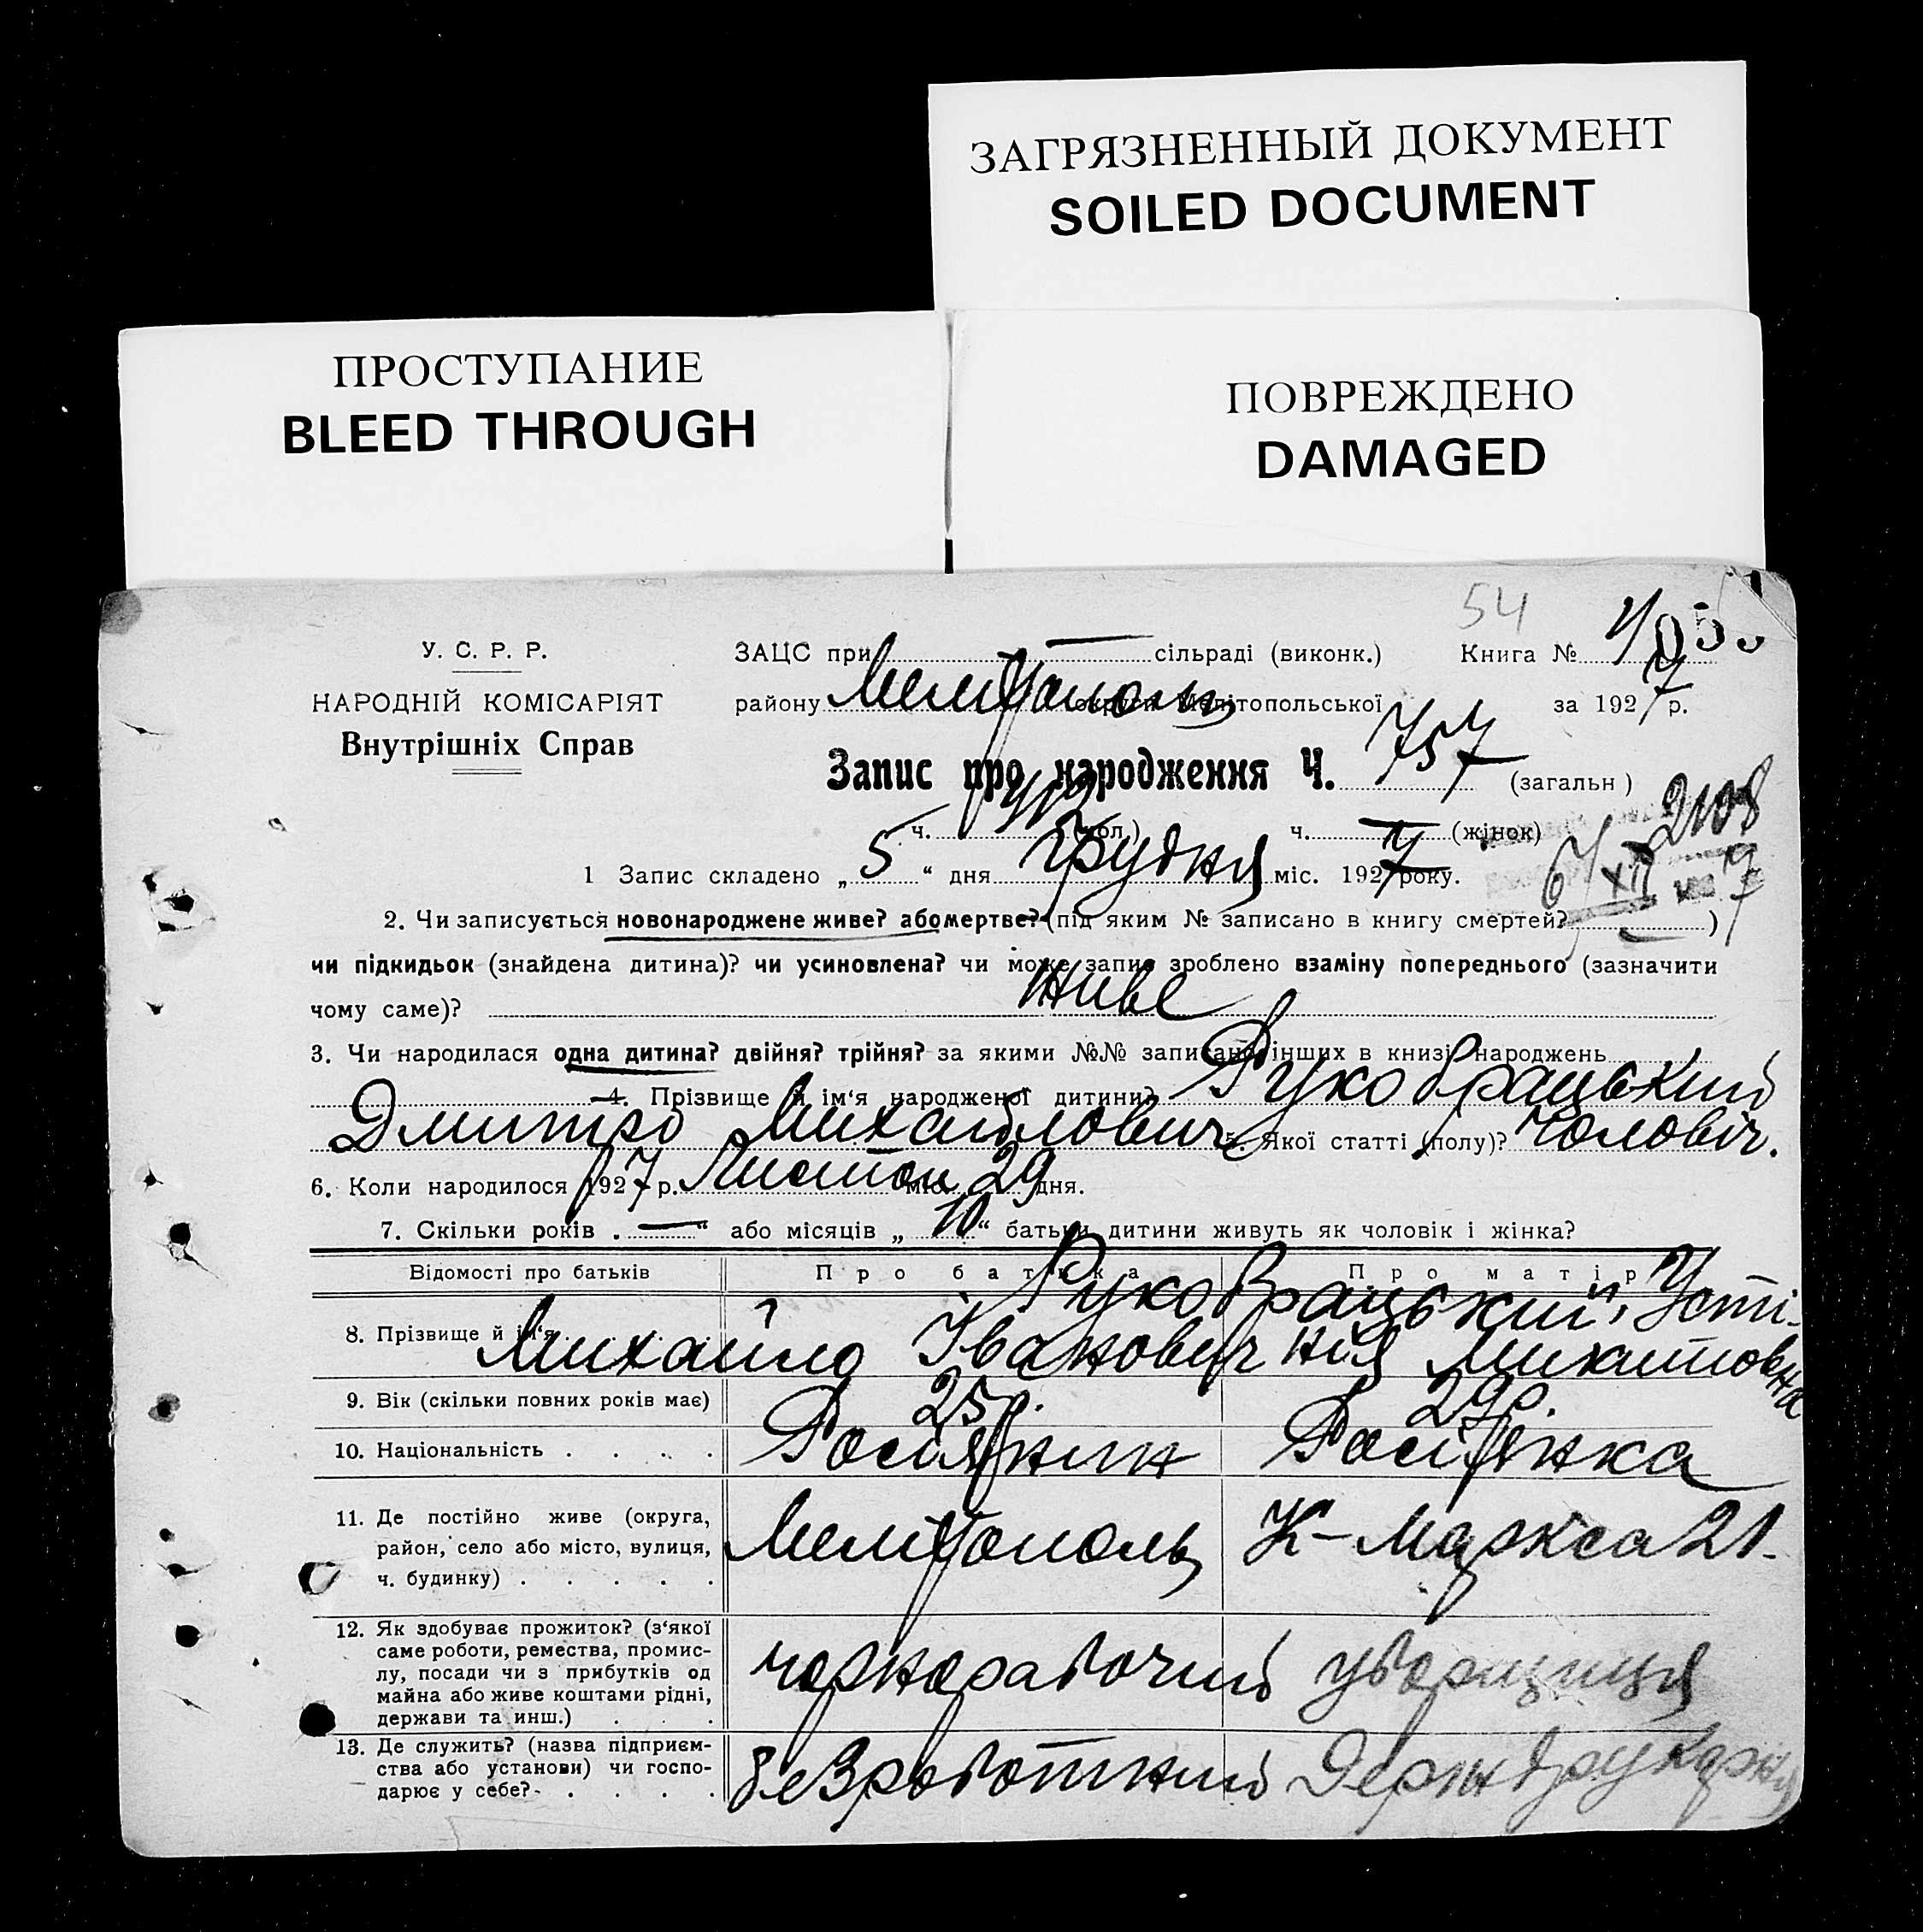 ЗАГРЯЗНЕННЫЙ ДОКУМЕНТ
SOILED DOCUMENT
ПРОСТУПАНИЕ
BLEED THROUGH
ПОВРЕЖДЕНО
DAMAGED
54
У. С. Р. Р.
НАРОДНІЙ КОМІСАРІЯТ
Внутрішніх Справ
ЗАЦС при — сільраді (виконк.) Книга №
району Мелітополь округи Мелітопольської за 1927 р.
Запис про народження Ч. 757 (загальн)
ч. (чол.) ч. — (жінок)
2108
1 Запис складено „5“ дня Грудня міс. 1927 року.
2. Чи записується новонароджене живе? або мертве? (під яким № записано в книгу смертей? — )
чи підкидьок (знайдена дитина)? чи усиновлена? чи може запис зроблено взаміну попереднього (зазначити
чому саме)? живе
3. Чи народилася одна дитина? двійня? трійня? за якими №№ записано інших в книзі народжень
— 4. Прізвище й ім'я народженої дитини? Рукобрацький
Дмитро Михайлович 5. Якої статті (полу)? чоловіч.
6. Коли народилося 1927 р. Листоп міс. 29 дня.
7. Скільки років „—“ або місяців „10“ батьки дитини живуть як чоловік і жінка?
Відомості про батьків Про батька Про матір
8. Прізвище й ім'я Рукобрацький, Усті-
Михайло Іванович нія Микитовна
9. Вік (скільки повних років має) 25р. 29р.
10. Національність Росіянин Росіянка
11. Де постійно живе (округа,
район, село або місто, вулиця,
ч. будинку) Мелітополь К-Маркса 21.
12. Як здобуває прожиток? (з'якої
саме роботи, ремества, промис-
лу, посади чи з прибутків од
майна або живе коштами рідні,
держави та инш.) чорнорабочий уборщиця
13. Де служить? (назва підприєм-
ства або установи) чи госпо-
дарює у себе? безработний Держ друкарня